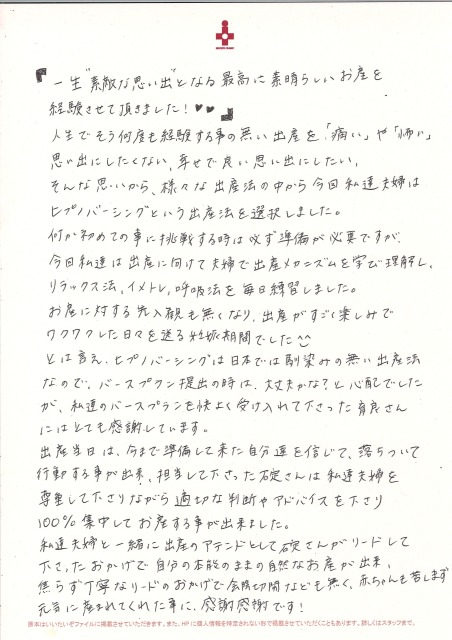 『一生"素敵な思い出"となる最高に素晴らしいお産を
経験させて頂きました!♥♥』
人生でそう何度も経験する事の無い出産を、「痛い」や「怖い」
思い出にしたくない、幸せで良い思い出にしたい。
そんな思いから、様々な出産法の中から今回私達夫婦は
ヒプノバーシングという出産法を選択しました。
何か初めての事に挑戦する時は必ず準備が必要ですが、
今回私達は出産に向けて夫婦で出産メカニズムを学び理解し、
リラックス法、イメトレ、呼吸法を毎日練習しました。
お産に対する先入観も無くなり、出産がすごく楽しみで
ワクワクした日々を送る妊娠期間でした
とは言え、ヒプノバーシングは日本では馴染みの無い出産法
なので、バースプラン提出の時は、大丈夫かな?と心配でした
が、私達のバースプランを快よく受け入れて下さった育良さん
にはとても感謝しています。
出産当日は、今まで準備して来た自分達を信じて、落ちついて
行動する事が出来、担当して下さった石定さんは私達夫婦を
尊重して下さりながら適切な判断やアドバイスを下さり
100%集中してお産する事が出来ました。
私達夫婦と一緒に出産のアテンドとして石定さんがリードして
下さったおかげで自分の本能のままの自然なお産が出来、
焦らず丁寧なリードのおかげで会陰切開なども無く、赤ちゃんも苦しまず
元気に産まれてくれた事に、感謝感謝です!
原本はいいたいぞファイルに掲載させていただきます。また、HPに個人情報を特定されない形で掲載させていただくこともあります。詳しくはスタッフまで。